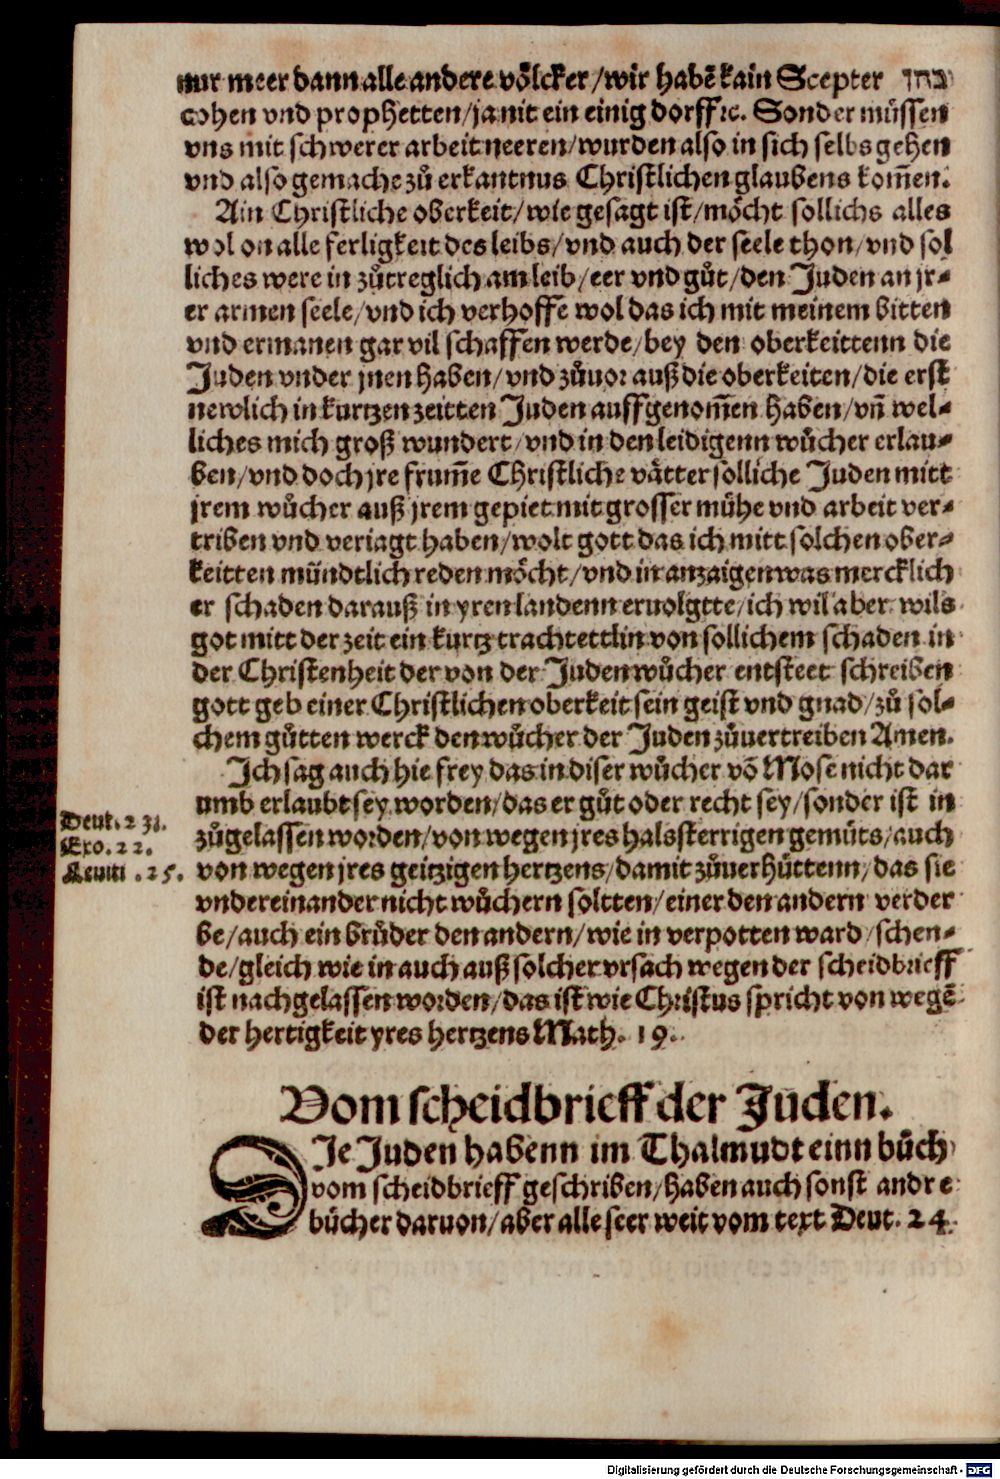 nur meer dann alle andere völcker/wir habẽ kain Scepter כהן
cohen vnd prophetten/ja nit ein einig dorff ꝛc. Sonder müssen
vns mit schwerer arbeit neeren/wurden also in sich selbs gehen
vnd also gemache zů erkantnus Christlichen glaubens kom̃en.
Ain Christliche oberkeit/wie gesagt ist/möcht sollichs alles
wol on alle ferligkeit des leibs/vnd auch der seele thon/vnd sol
liches were in zůtreglich am leib/eer vnd gůt/den Juden an jr-
er armen seele/vnd ich verhoffe wol das ich mit meinem bitten
vnd ermanen gar vil schaffen werde/bey den oberkeittenn die
Juden vnder jnen haben/vnd zůuor auß die oberkeiten/die erst
newlich in kurtzen zeitten Juden auffgenom̃en haben/vñ wel-
liches mich groß wundert/vnd in den leidigenn wůcher erlau-
ben/vnd doch jre frum̃e Christliche vätter solliche Juden mitt
jrem wůcher auß jrem gepiet mit grosser mühe vnd arbeit ver-
triben vnd veriagt haben/wolt gott das ich mitt solchen ober-
keitten mündtlich reden möcht/vnd in anzaigen was mercklich
er schaden darauß in yren landenn eruolgtte/ich wil aber wils
got mitt der zeit ein kurtz trachtettlin von sollichem schaden in
der Christenheit der von der Juden wůcher entsteet schreiben
gott geb einer Christlichen oberkeit sein geist vnd gnad/zů sol-
chem gůtten werck den wůcher der Juden zůuertreiben Amen.
Ich sag auch hie frey das in diser wůcher võ Mose nicht dar
umb erlaubt sey worden/das er gůt oder recht sey/sonder ist in
Deut. 23.
zůgelassen worden/von wegen jres halssterrigen gemüts/auch
Exo. 22.
von wegen jres geitzigen hertzens/damit zůuerhüttenn/das sie
Leuiti. 25.
vndereinander nicht wůchern soltten/einer den andern verder
be/auch ein brůder den andern/wie in verpotten ward/schen-
de/gleich wie in auch auß solcher vrsach wegen der scheidbrieff
ist nachgelassen worden/das ist wie Christus spricht von wegẽ
der hertigkeit yres hertzens Math. 19.
Vom scheidbrieff der Juden.
DJe Juden habenn im Thalmudt einn bůch
vom scheidbrieff geschriben/haben auch sonst andre
bücher daruon/aber alle seer weit vom text Deut. 24.
Digitalisierung gefördert durch die Deutsche Forschungsgemeinschaft - DFG